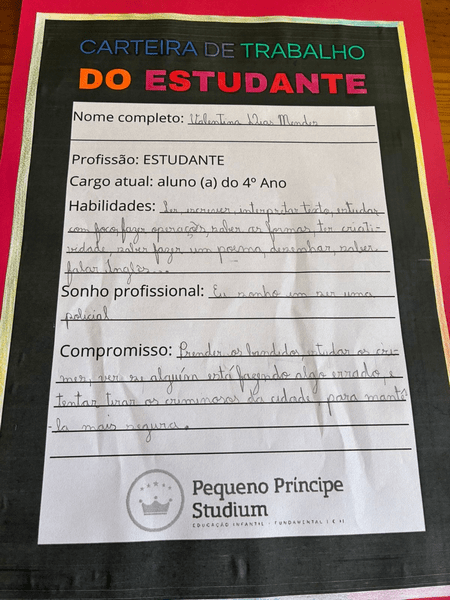 CARTEIRA DE TRABALHO
DO ESTUDANTE
Nome completo: Valentina Dias Mendes
Profissão: ESTUDANTE
Cargo atual: aluno (a) do 4º Ano
Habilidades: Ler, escrever, interpretar texto, estudar
com foco, fazer operações, saber as formas, ter criati-
vidade, saber fazer um poema, desenhar, saber
falar Inglês...
Sonho profissional: Eu sonho em ser uma
policial
Compromisso: Prender os bandidos, estudar os cri-
mes, ver se alguém está fazendo algo errado, e
tentar tirar os criminosos da cidade para mantê-
-la mais segura.
Pequeno Príncipe
Studium
EDUCAÇÃO INFANTIL · FUNDAMENTAL I E II